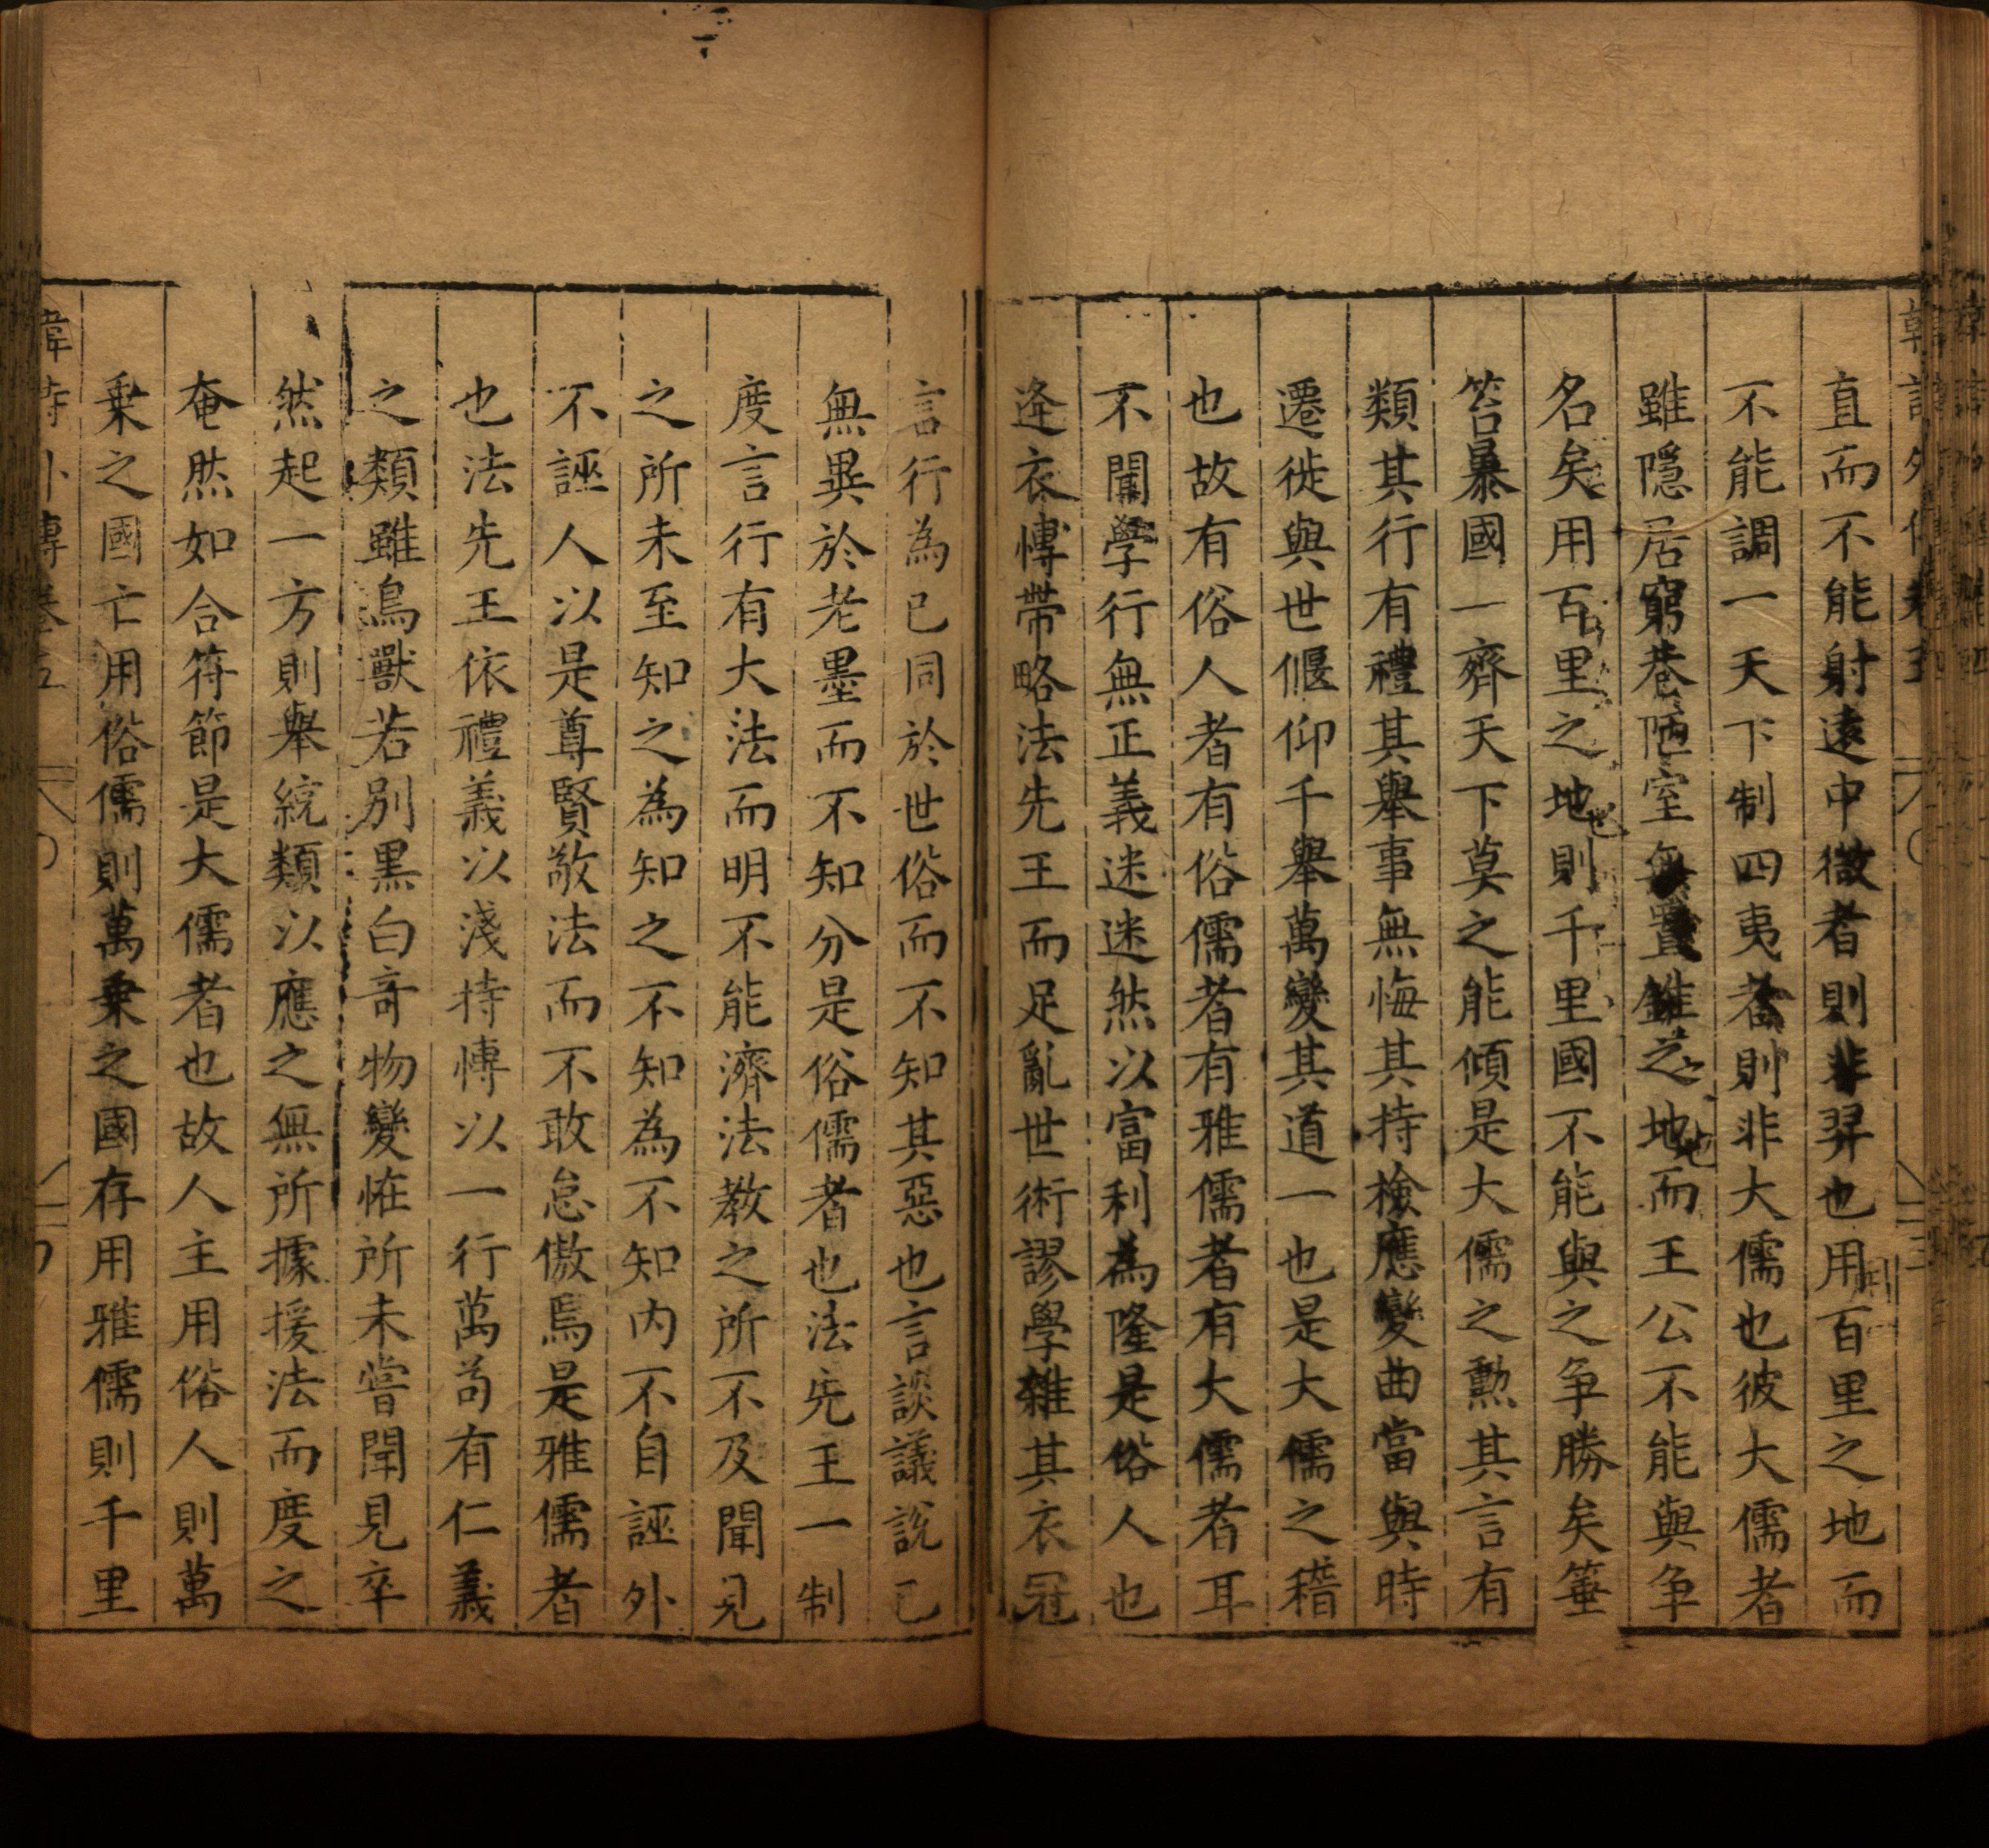 直而不能射遠中微者則非羿也用百里之地而
不能調一天下制四夷者則非大儒也彼大儒者
雖隱居窮巷陋室無置錐之地而王公不能與爭
名矣用百里之地則千里國不能與之争勝矣箠
笞暴國一齊天下莫之能傾是大儒之勲其言有
類其行有禮其舉事無悔其持檢應變曲當與時
遷徙與世偃仰千舉萬變其道一也是大儒之稽
也故有俗人者有俗儒者有雅儒者有大儒者耳
不聞學行無正義迷迷然以富利為隆是俗人也
逄衣博帶略法先王而足亂世術謬學雜其衣冠
言行為已同於世俗而不知其惡也言談議說已
無異於老墨而不知分是俗儒者也法先王一制
度言行有大法而明不能濟法教之所不及聞見
之所未至知之為知之不知為不知内不自誣外
不誣人以是尊賢敬法而不敢怠傲焉是雅儒者
也法先王依禮義以淺持博以一行萬苟有仁義
之類雖鳥獸若别黒白奇物變恠所未嘗聞見卒
然起一方則舉統類以應之無所據援法而度之
奄然如合符節是大儒者也故人主用俗人則萬
乗之國亡用俗儒則萬乗之國存用雅儒則千里